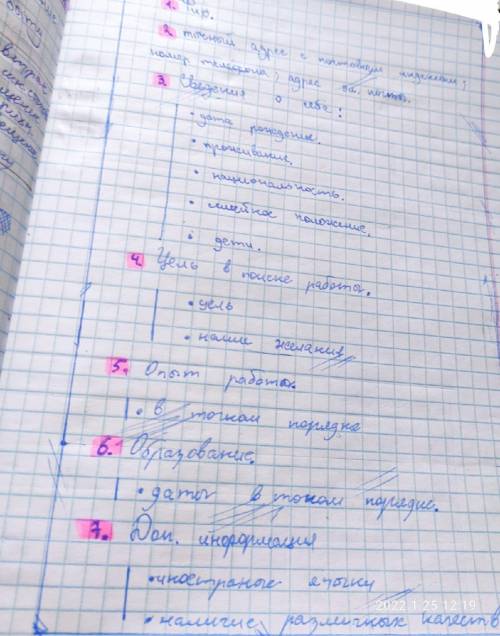 1. Фио.
2. точный адрес с почтовым индексом;
номер телефона; адрес эл. почты.
3. Сведения о себе:
• дата рождения.
• проживание.
• национальность.
• семейное положение.
• дети.
4. Цель в поиске работы.
• цель
• наши желания
5. Опыт работы.
• в точном порядке
6. Образование.
• даты в точном порядке.
7. Доп. информация
• иностраные языки
• наличие различных качеств
2022.1.25 12:19